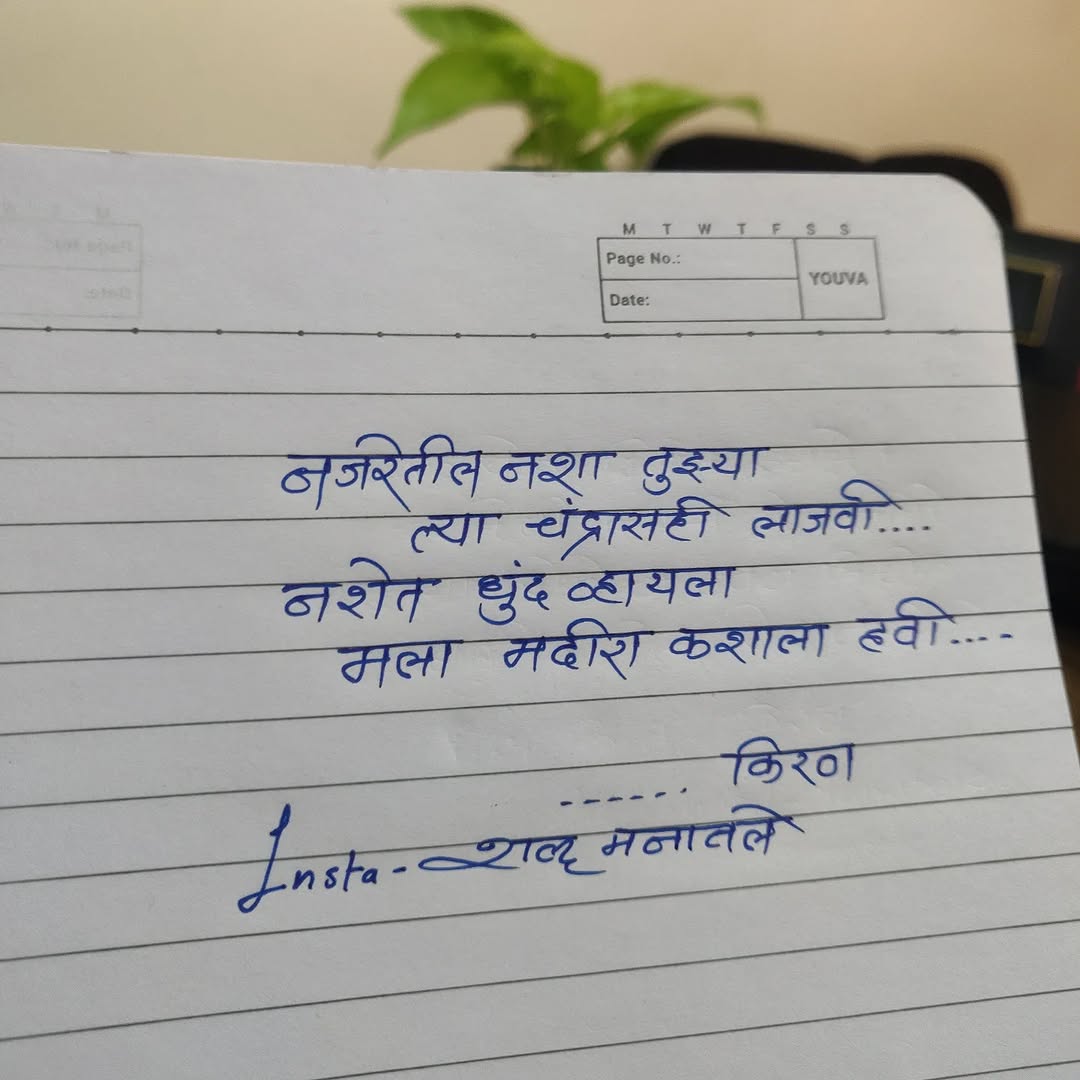 M T W T F S S
Page No.:
YOUVA
Date:
नजरेतील नशा तुझ्या
त्या चंद्रासही लाजवी....
नशेत धुंद व्हायला
मला मदीरा कशाला हवी....
...... किरण
Insta - शब्द मनातले